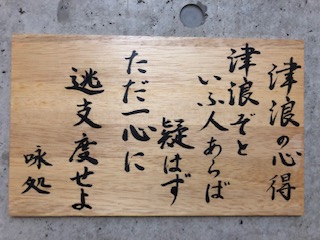 津浪の心得
津浪ぞと
いふ人あらば
疑はず
ただ一心に
逃支度せよ
咏処